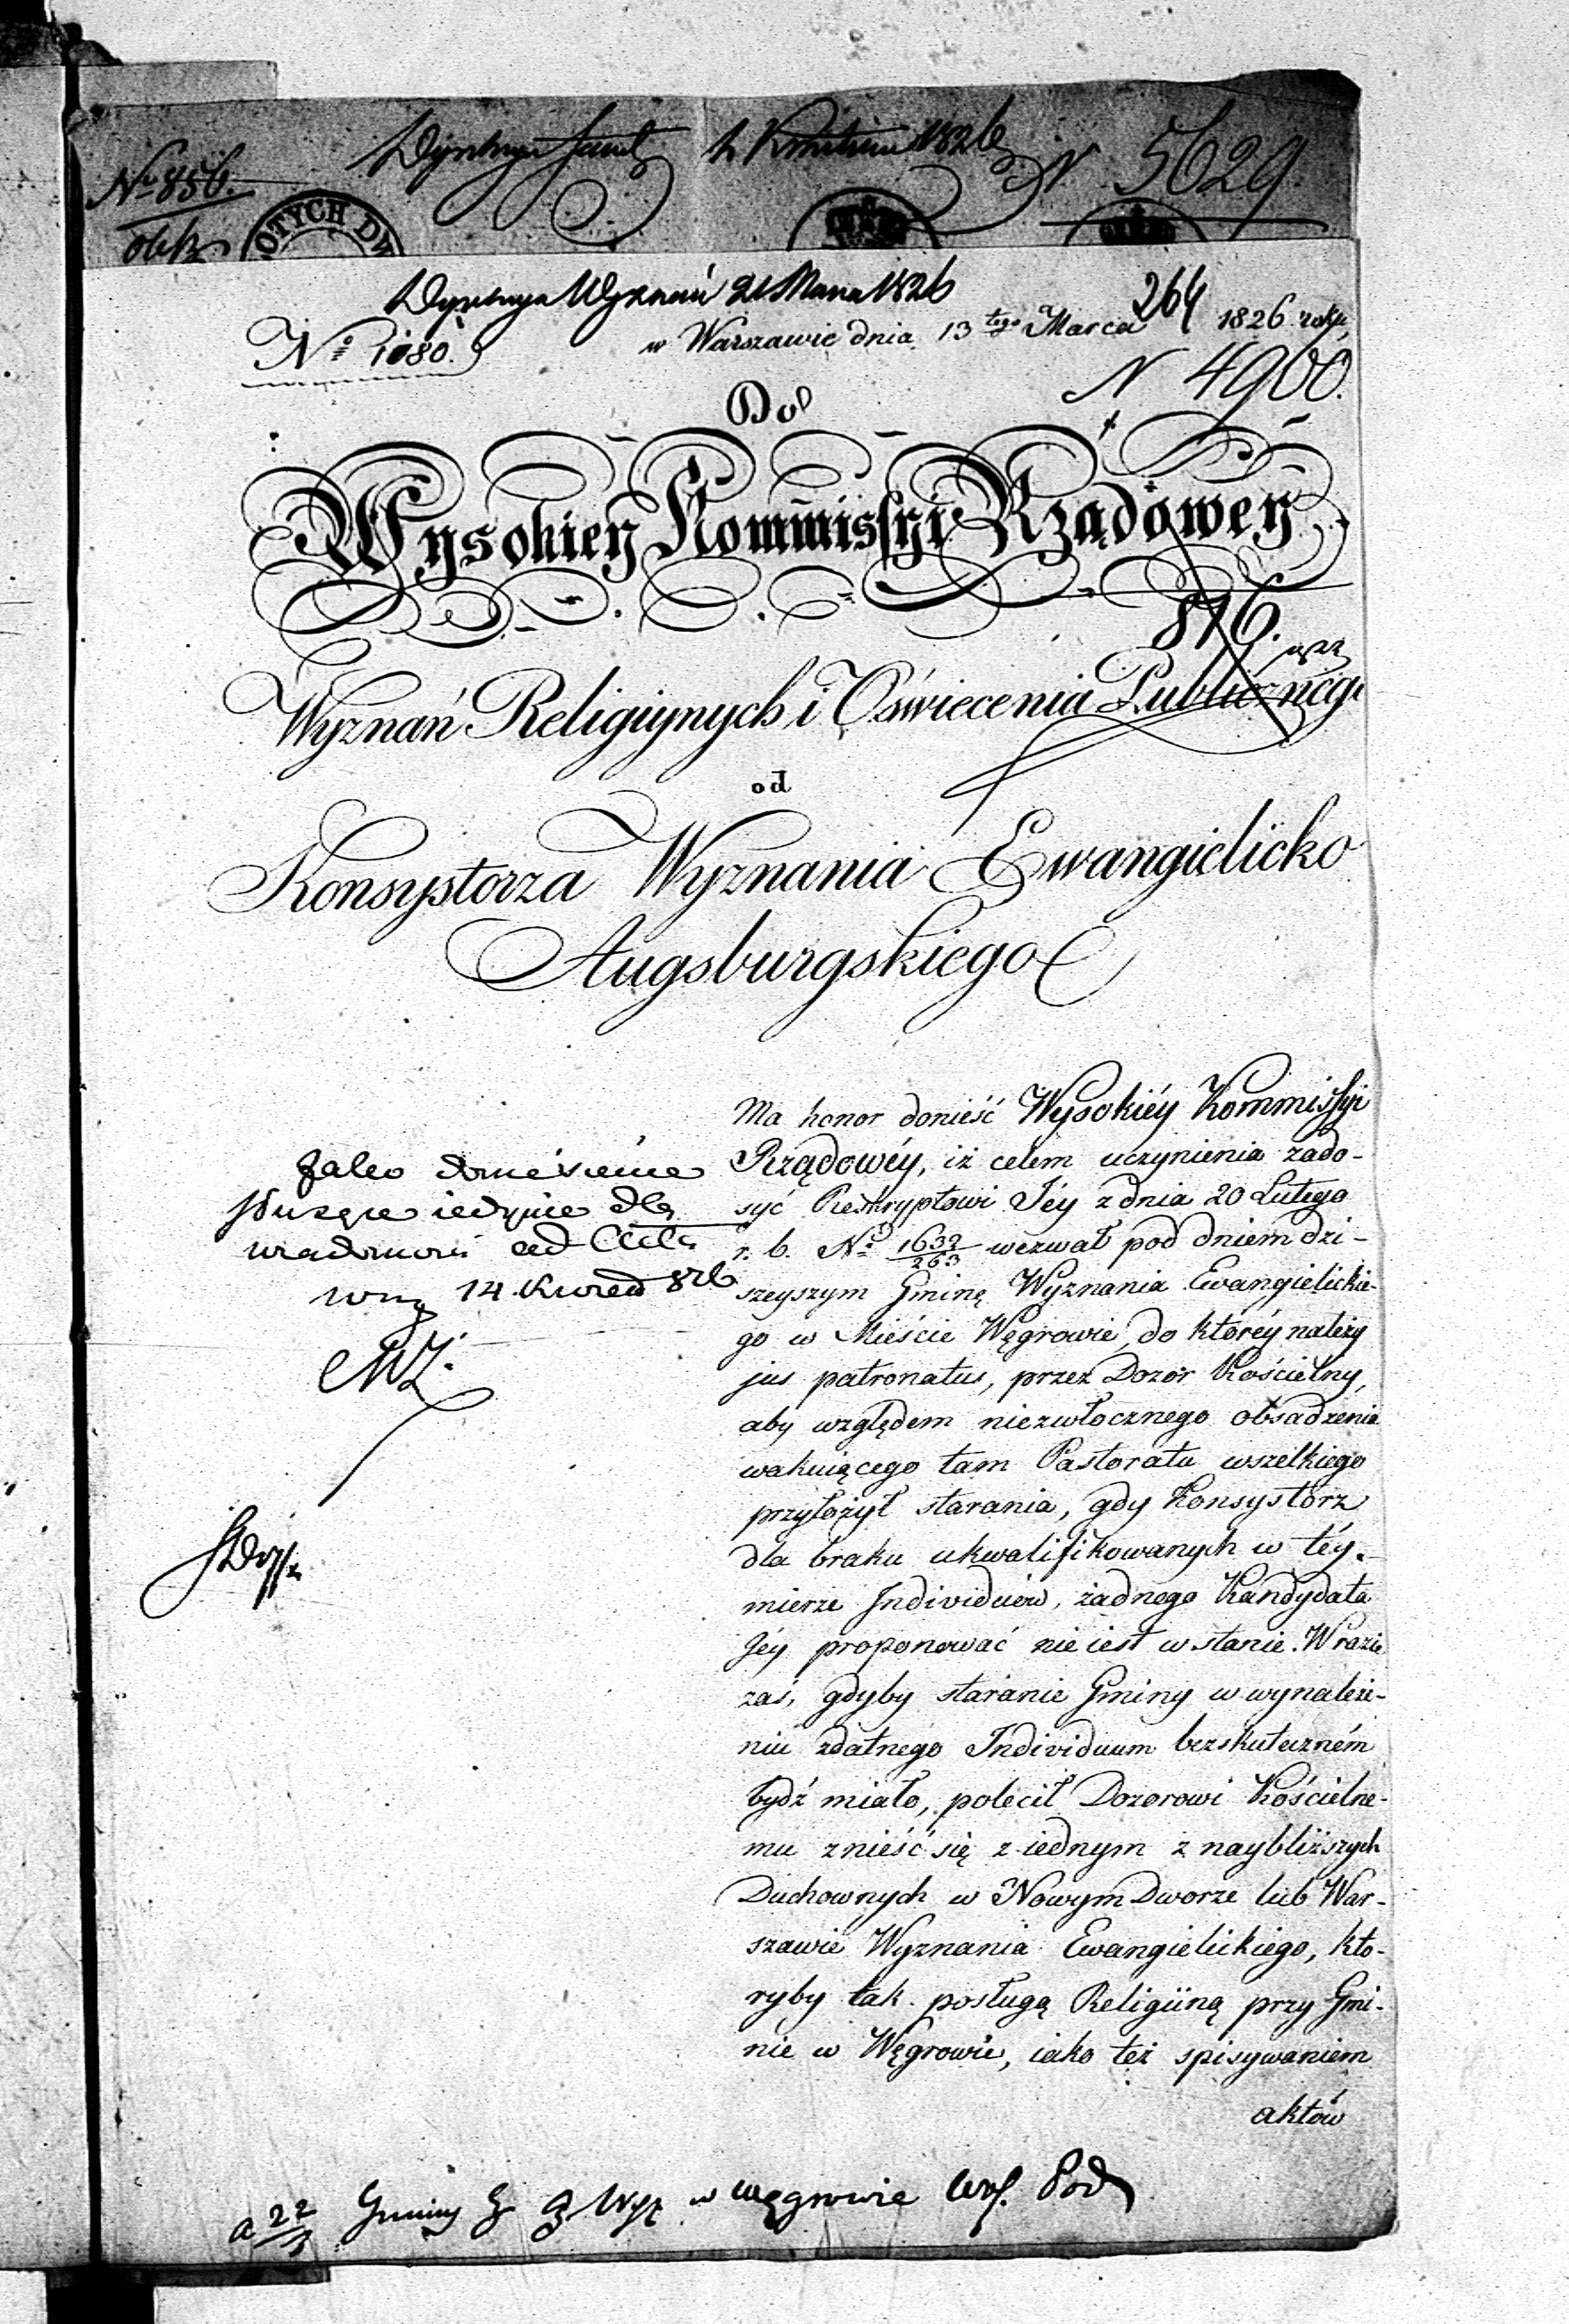 Nº 856.
1826
N 5629.
OTYCH DW
Dyrekcya Wyznań 21 Marca 1826
264
Nº 1080.
w Warszawie dnia 13 tego Marca 1826 roku
N 4900.
Do
Wysokiey Kommissyi Rządowey
816.
Wyznań Religiynych i Oświecenia Publicznego
od
Konsystorza Wyznania Ewangielicko
Augsburgskiego
Ma honor donieść Wysokiéy Kommissyi
Rządowéy, iż celem uczynienia zado-
syć Reskryptowi Jéy z dnia 20 Lutego
r. b. Nº 1632/263 wezwał pod dniem dzi-
szeyszym Gminę Wyznania Ewangielickie-
go w Mieście Węgrowie, do któréy należy
jus patronatus, przez Dozór Kościelny,
aby względem niezwłocznego obsadzenia
wakuiącego tam Pastoratu wszelkiego
przyłożył starania, gdy Konsystorz
dla braku ukwalifikowanych w téy
mierze Individuów, żadnego Kandydata
Jéy proponować nie iest w stanie. W razie
zaś, gdyby staranie Gminy w wynalezie-
niu zdatnego Individuum bezskuteczném
bydź miało, polecił Dozorowi Kościelne-
mu znieść się z iednym z naybliższych
Duchownych w Nowym Dworze lub War-
szawie Wyznania Ewangielickiego, któ-
ryby tak posługą Religiiną przy Gmi-
nie w Węgrowie, iako też spisywaniem
aktów
Jako doniesienie
służące iedynie dla
wiadomości ad acta
14 Kwiet 826
a 22/3 Gminy E A Wyz w Węgrowie Wof. Pod